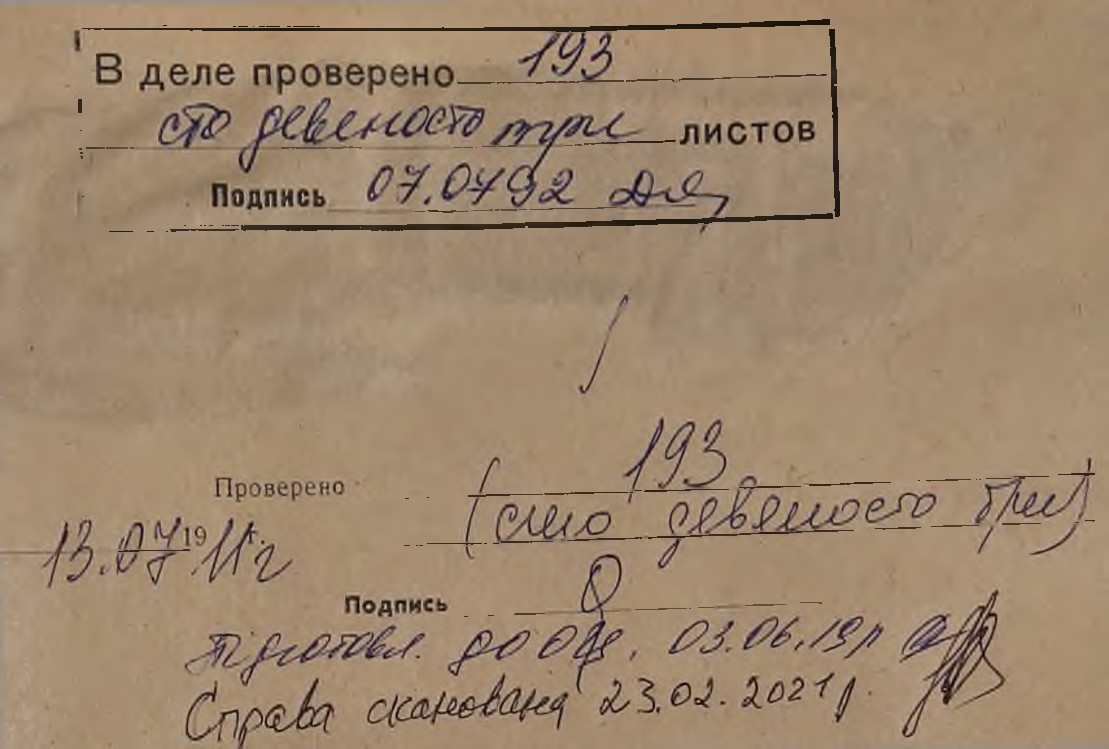 В деле проверено 193
сто девеносто три листов
Подпись 07.0492
193
Проверено (сто девеносто три)
13.07 19 11г
Подпись
Підготовл. до оц. 03.06.19р
Справа сканована 23.02.2021р.